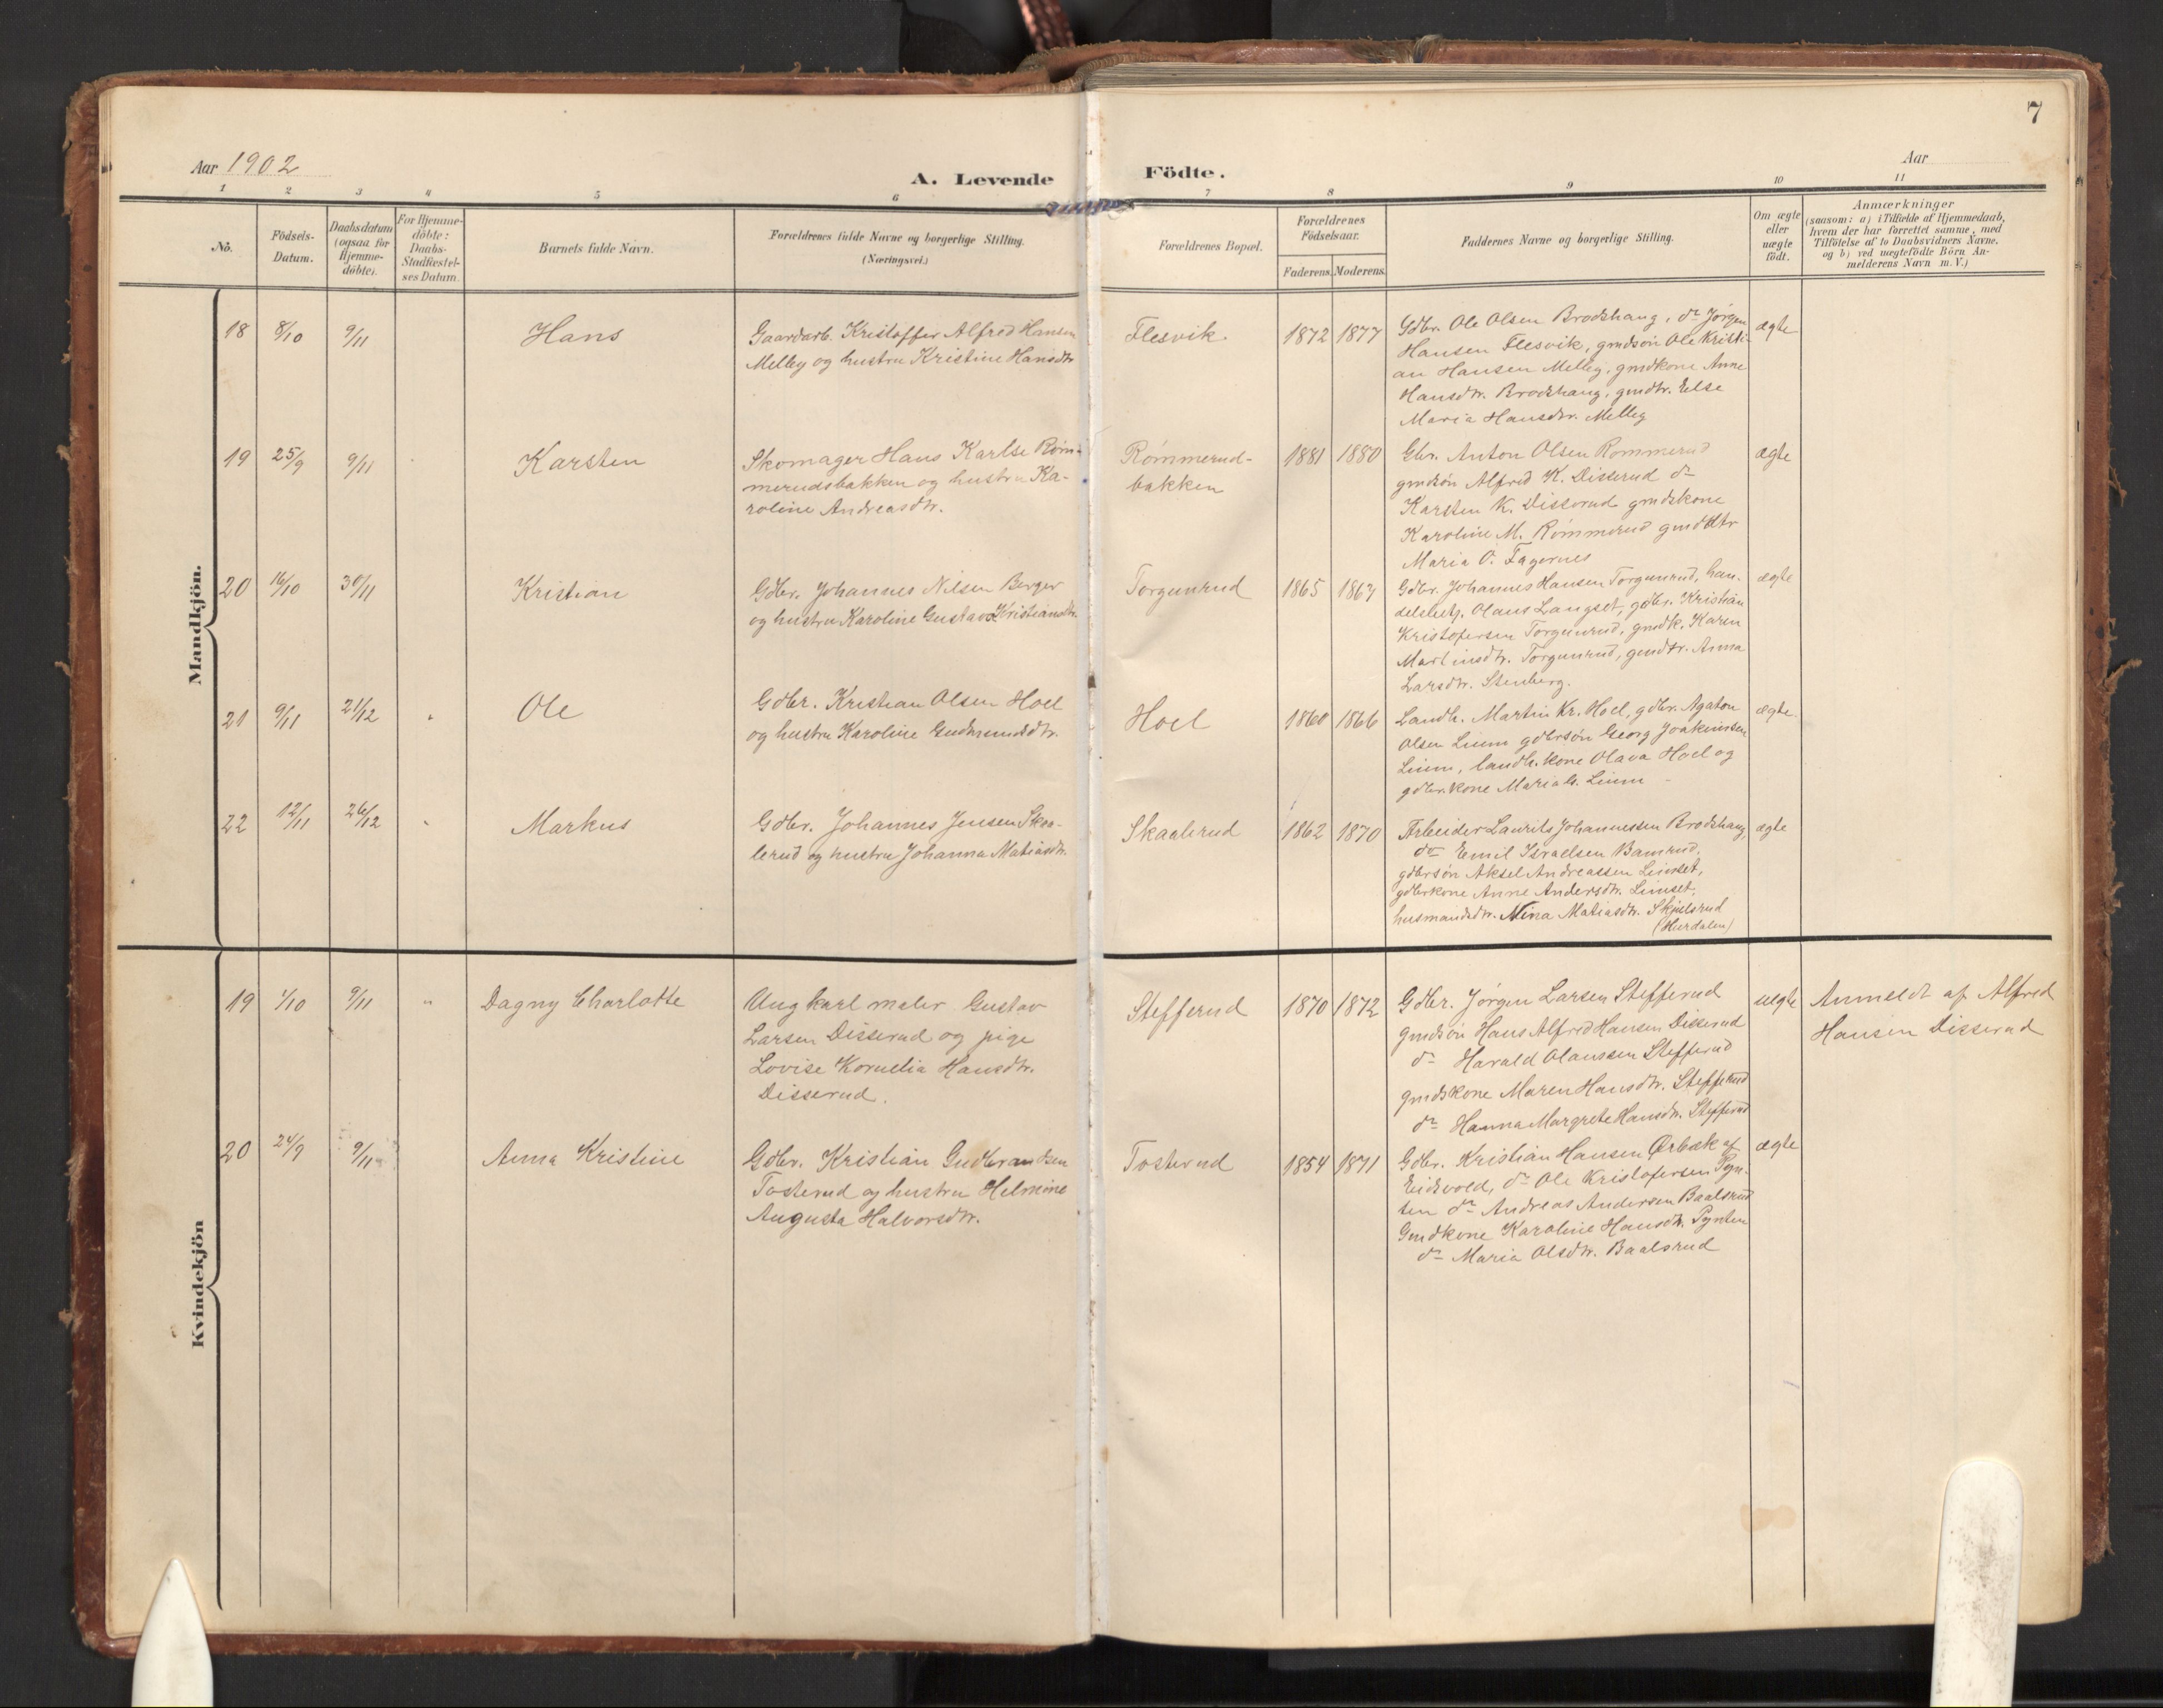 7
Aar 1902
A. Levende Födte.
Aar
1 2 3 4 5 6 7 8 9 10 11
No.
Födsels-
Datum.
Daabsdatum
(ogsaa for
Hjemme-
döbte).
For Hjemme-
döbte:
Daabs-
Stadfæstel-
ses Datum.
Barnets fulde Navn.
Forældrenes fulde Navne og borgerlige Stilling.
(Næringsvei.)
Forældrenes Bopæl.
Forældrenes
Födselsaar.
Faderens. Moderens.
Faddernes Navne og borgerlige Stilling.
Om ægte
eller
uægte
födt.
Anmærkninger
(saasom: a) i Tilfælde af Hjemmedaab,
hvem der har forrettet samme, med
Tilföielse af to Daabsvidners Navne,
og b) ved uægtefödte Börn An-
melderens Navn m. V.)
Mandkjön.
18 8/10 9/11 Hans
Gaardarb. Kristoffer Alfred Hansen
Melby og hustru Kristine Hansdtr
Flesvik 1872 1877
Gdbr. Ole Olsen Brodshaug, do Jørgen
Hansen Flesvik, gmdsøn Ole Kristi-
an Hansen Melby, gmdkone Anne
Hansdtr. Brodshaug, gmdtr. Else
Maria Hansdtr. Melby
ægte
19 25/9 9/11 Karsten
Skomager Hans Karlse Røm-
merudsbakken og hustru Ka-
roline Andreasdtr.
Rømmerud-
bakken
1881 1880
Gbr. Anton Olsen Rømmerud
gmdsøn Alfred K. Disserud do
Karsten K. Disserud gmdskone
Karoline M. Rømmerud gmddtr
Maria O. Fagernes
ægte
20 16/10 30/11 Kristian
Gdbr. Johannes Nilsen Berger
og hustru Karoline Gustava Kristiansdtr.
Torgunrud 1865 1867
Gdbr. Johannes Hansen Torgunrud, han-
delsbetj. Olaus Langset, gdbr. Kristian
Kristofersen Torgunrud, gmdk. Karen
Martinsdtr. Torgunrud, gmdtr. Anna
Larsdtr. Stenberg.
ægte
21 9/11 21/12 " Ole
Gdbr. Kristian Olsen Hoel
og hustru Karoline Gudmundsdtr.
Hoel 1860 1866
Landh. Martin Kr. Hoel, gdbr. Agaton
Olsen Linm gdbrsøn Georg Joakimsen
Linm, landh. kone Olava Hoel og
gdbr. kone Maria Linm
ægte
22 12/11 26/12 " Markus
Gdbr. Johannes Jensen Skaa-
lerud og hustru Johanna Matiasdtr.
Skaalerud 1862 1870
Arbeider Laurits Johannessen Brodshaug,
do Emil Israelsen Bamrud,
gdbrsøn Aksel Andreassen Limset,
gdbrkone Anne Andersdtr. Limset,
husmandsdtr. Nina Matiasdtr. Skjelsrud
(Hurdalen)
ægte
Kvindekjön
19 1/10 9/11 " Dagny Charlotte
Ungkarl maler Gustav
Larsen Disserud og pige
Lovise Kornelia Hansdtr.
Disserud.
Stefferud 1870 1872
Gdbr. Jørgen Larsen Stefferud
gmdsøn Hans Alfred Hansen Disserud
do Harald Olaussen Stefferud
gmdskone Maren Hansdtr. Stefferud
do Hanna Margrete Hansdtr. Stefferud
uægte
Anmeldt af Alfred
Hansen Disserud
20 24/9 9/11 Anna Kristine
Gdbr. Kristian Gudbrandsen
Tosterud og hustru Helmine
Augusta Halvorsdtr.
Tosterud 1854 1871
Gdbr. Kristian Hansen Ørbæk af
Eidsvold, do Ole Kristofersen Pyn-
ten do Andreas Andersen Baalsrud
Gmdkone Karoline Hansdtr. Pynten
do Maria Olsdtr. Baalsrud
ægte